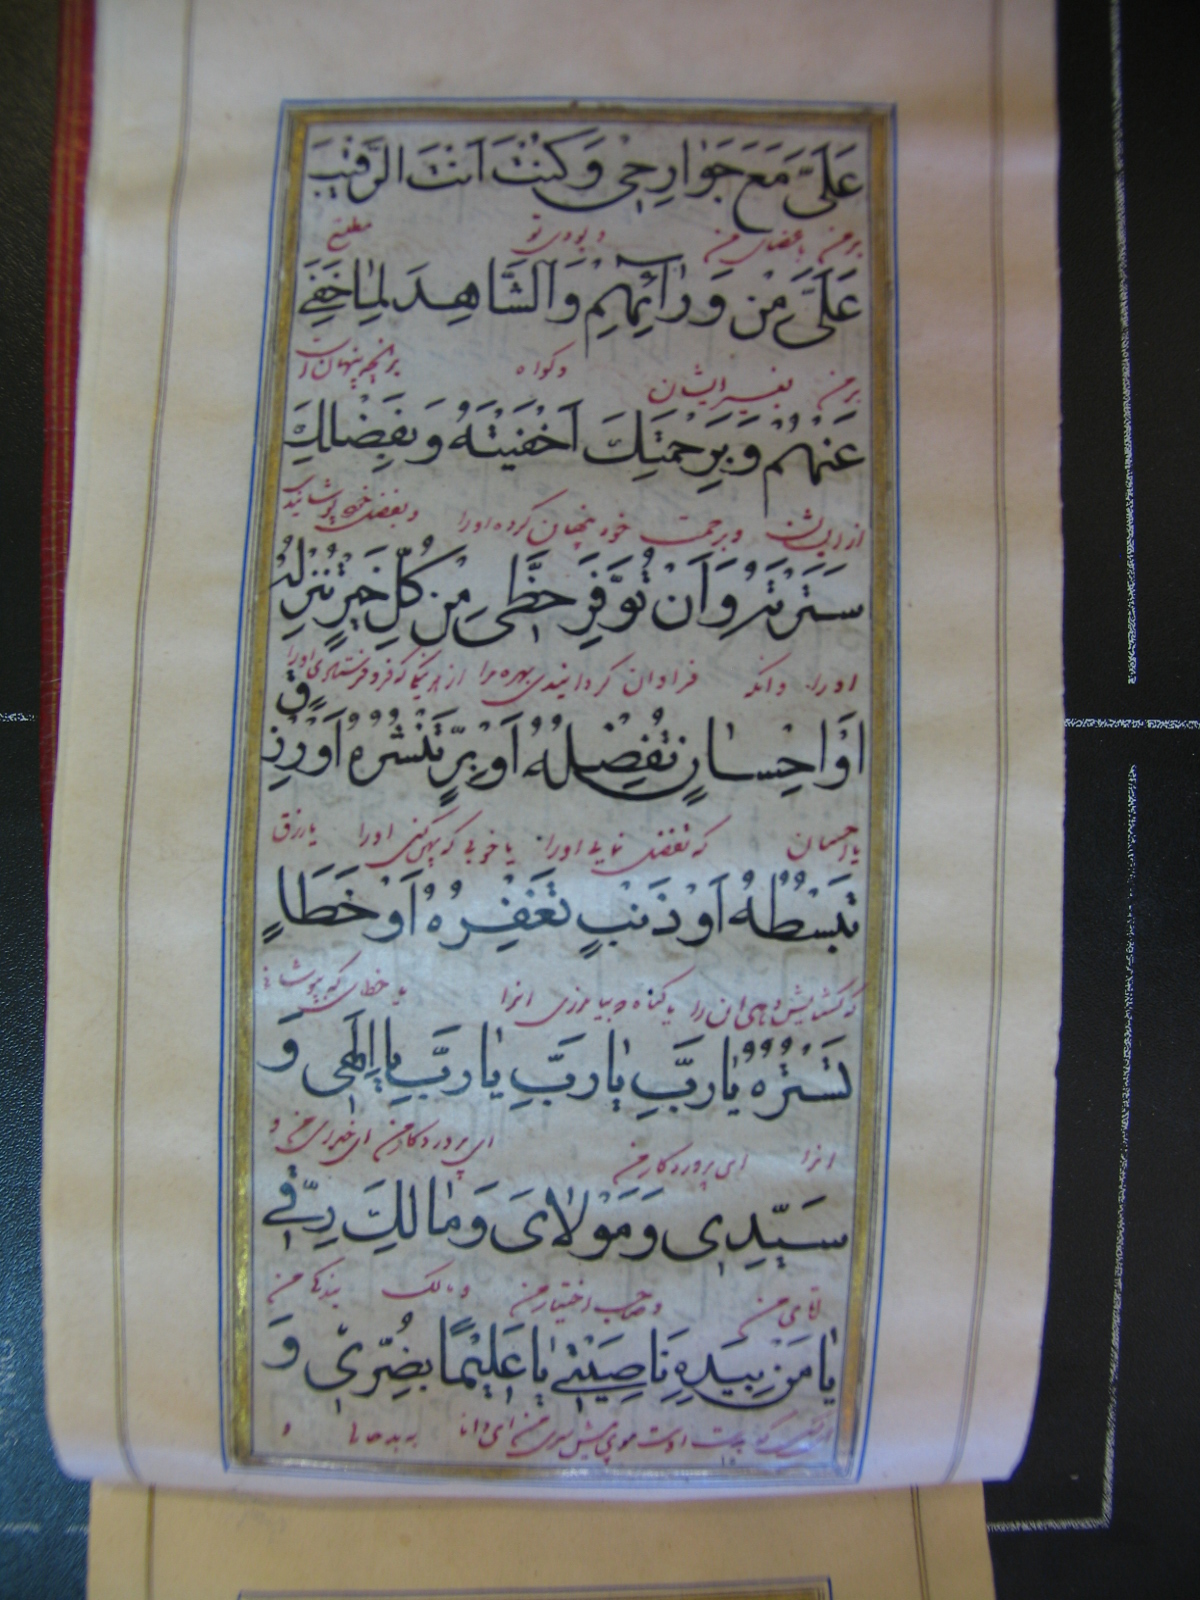 عَلَیَّ مَعَ جَوٰارِحٖی وَکُنْتَ اَنْتَ الرَّقٖیبَ
بر من با عضای من و بودی تو مطلع
عَلَیَّ مِنْ وَرٰائِهِمْ وَالشّٰاهِدَ لِمٰا خَفِیَ
بر من بغیر ایشان و کواه بر انچه پنهان است
عَنْهُمْ وَبِرَحْمَتِكَ اَخْفَیْتَهُ وَبِفَضْلِكَ
از ایشان و برحمت خود پنهان کرده اورا و بفضل خود پوشانیدی
سَتَرْتَهُ وَاَنْ تُوَفِّرَ حَظّٖی مِنْ کُلِّ خَیْرٍ تُنْزِلُهُ
اورا و انکه فراوان کردانیدی بهره مرا از هر نیکی که فرو فرستادی اورا
اَوْ اِحْسٰانٍ تُفْضِلُهُ اَوْ بِرٍّ تَنْشُرُهُ اَوْ رِزْقٍ
یا احسان که تفضل نمایی اورا یا خوبی که پهن کنی اورا یا رزق
تَبْسُطُهُ اَوْ ذَنْبٍ تَغْفِرُهُ اَوْ خَطَاءٍ
که کشایش دهی ان را یا کناه که بیامرزی انرا یا خطای که بپوشانی
تَسْتُرُهُ یٰارَبِّ یٰارَبِّ یٰارَبِّ یٰااِلٰهٖی وَ
انرا ای پروردکار من ای پروردکار من ای خدای من و
سَیِّدٖی وَمَوْلٰایَ وَمٰالِكَ رِقّٖی
اقای من و صاحب اختیار من و مالک بندکی من
یٰا مَنْ بِیَدِهِ نٰاصِیَتٖی یٰا عَلٖیمًا بِضُرّٖی وَ
ای انکه بدست اوست موی پیش سر من ای دانا به بد حالی و